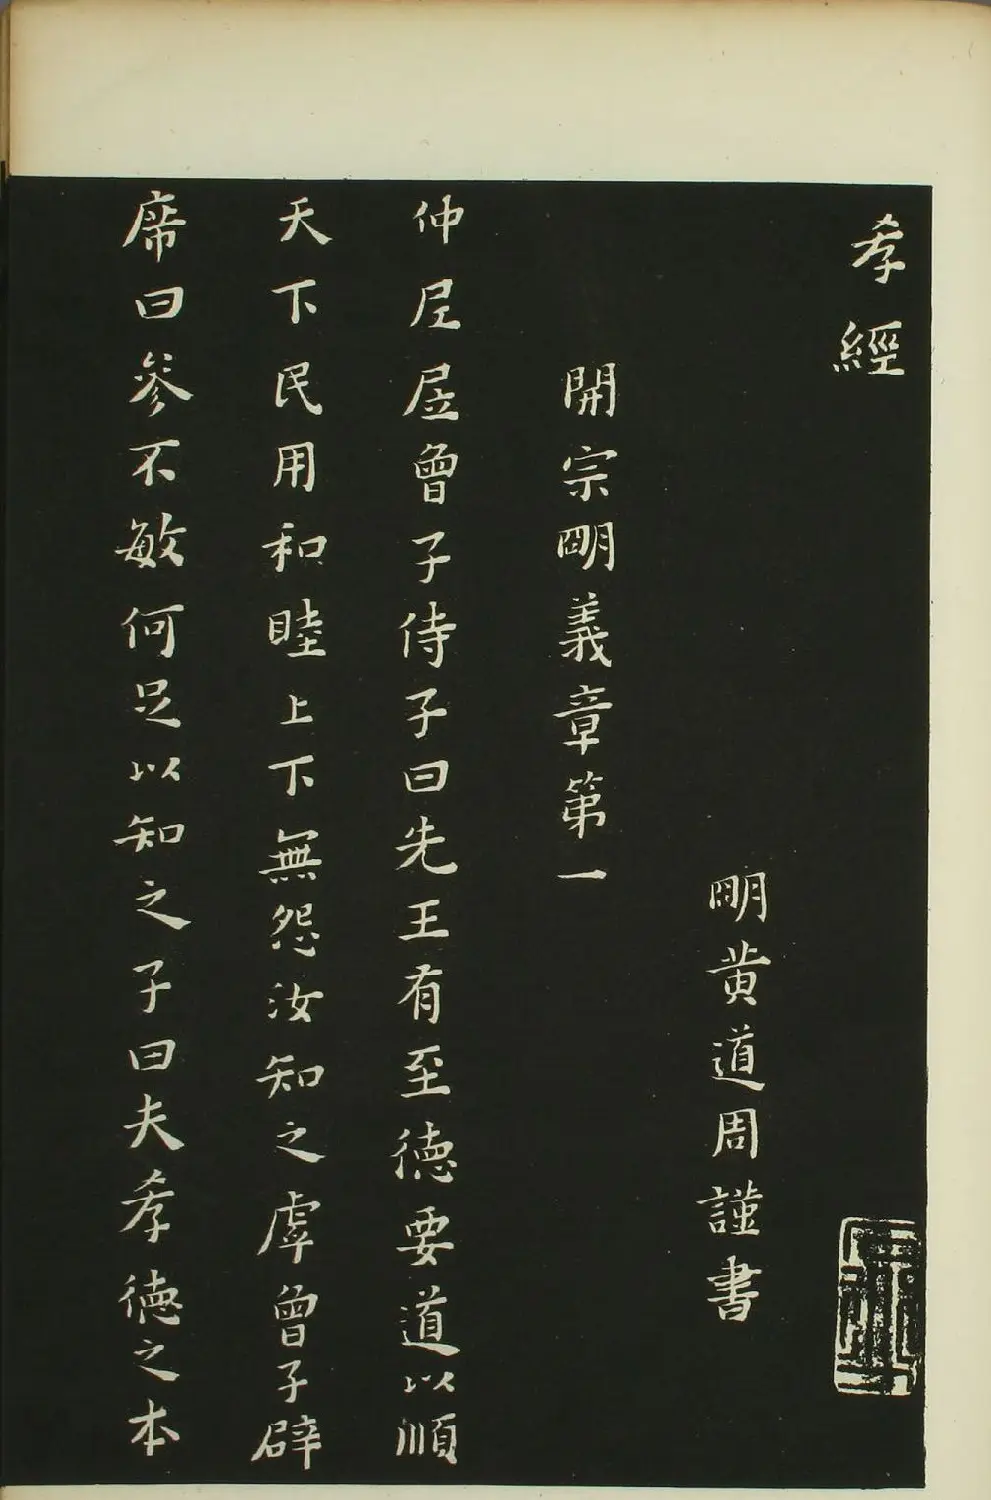 孝經
明黃道周謹書
開宗明義章第一
仲尼凥曾子侍子曰先王有至德要道以順
天下民用和睦上下無怨汝知之虖曾子辟
席曰參不敏何足以知之子曰夫孝德之本